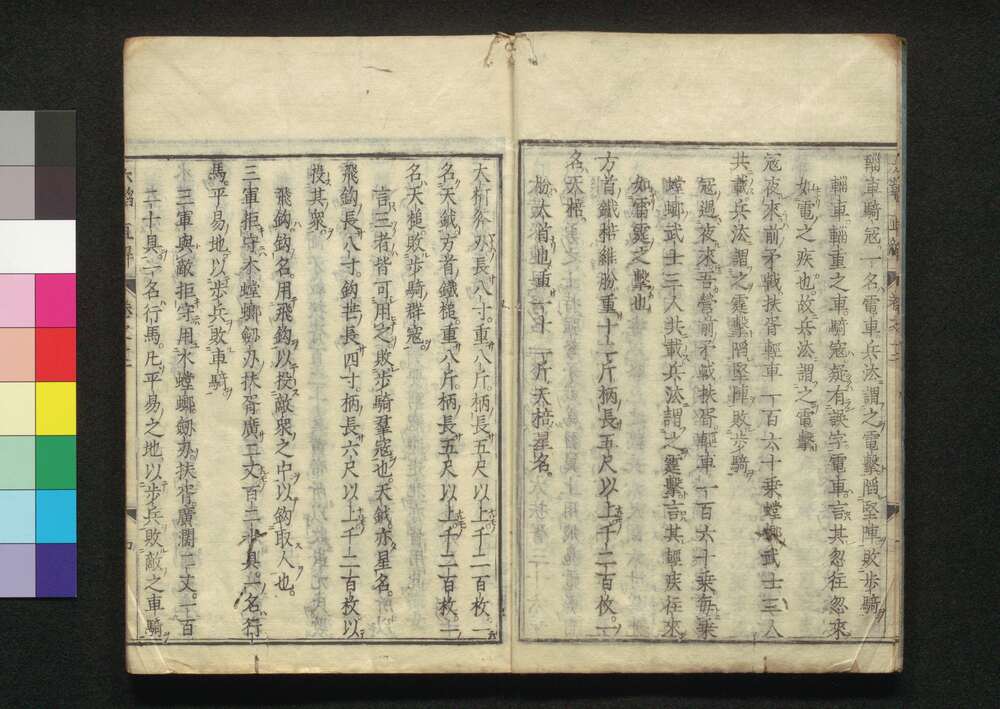 輜車騎寇一名電車兵法謂之電擊陷堅陣敗步騎
輜車輜重之車騎寇疑有誤字電車言其忽往忽來
如電之疾也故兵法謂之電擊
寇夜來前矛戟扶胥輕車一百六十乗螳螂武士三人
共載兵法謂之霆擊陷堅陣敗步騎
寇過夜來吾營前矛戟扶胥輕車一百六十乗每乗
螳螂武士三人共載兵法謂之霆擊言其輕疾往來
如雷霆之擊也
方首鐵棓維朌重十二斤柄長五尺以上千二百枚一
名天棓
朌大首也重十二斤天棓星名
大柯斧刃長八寸重八斤柄長五尺以上千二百枚一
名天鉞方首鐵槌重八斤柄長五尺以上千二百枚一
名天槌敗步騎群寇
言三者皆可用之敗步騎羣寇也天鉞亦星名
飛鈎長八寸鈎芒長四寸柄長六尺以上千二百枚以
投其衆
飛鈎鈎名用飛鈎以投敵衆之中以鈎取人也
三軍拒守木螳螂劔刃扶胥廣二丈百二十具一名行
馬平易地以步兵敗車騎
三軍與敵拒守用木螳螂劔刃扶胥廣濶二丈一百
二十具一名行馬凡平易之地以步兵敗敵之車騎